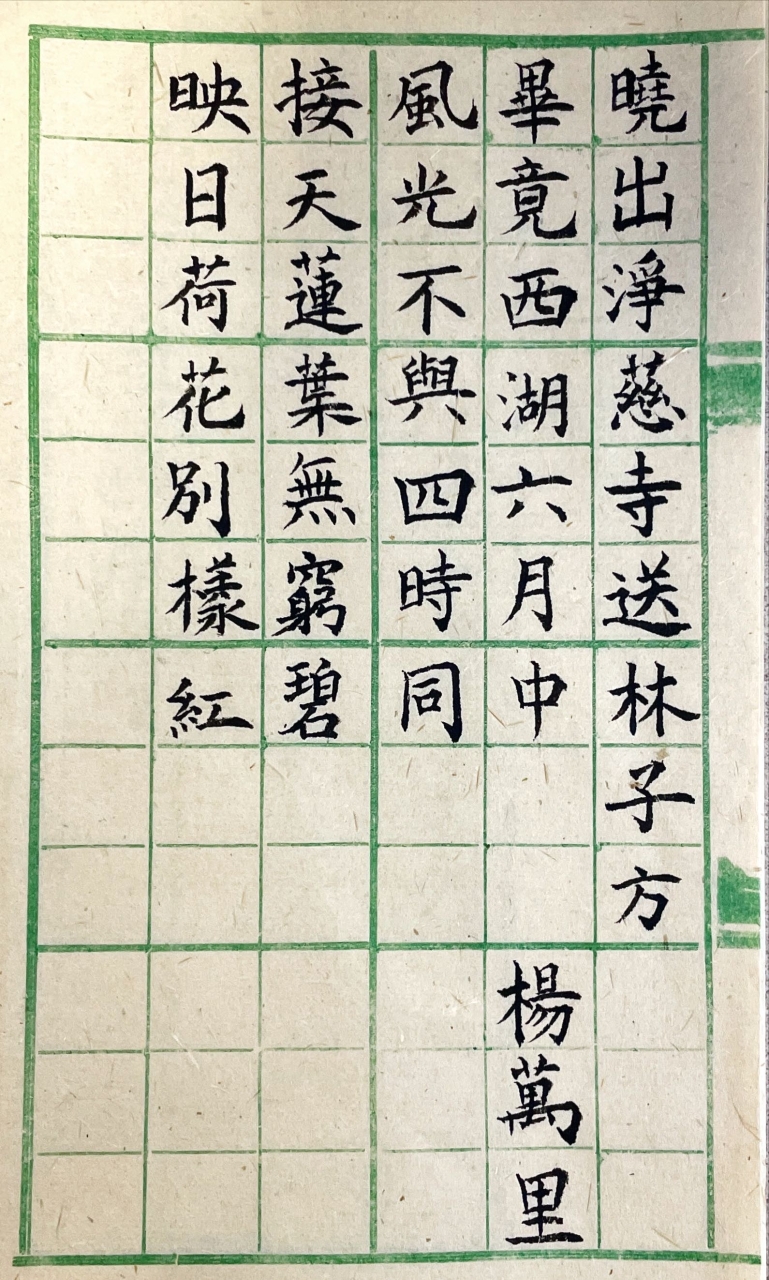 曉出淨慈寺送林子方
畢竟西湖六月中 楊萬里
風光不與四時同
接天蓮葉無窮碧
映日荷花別樣紅